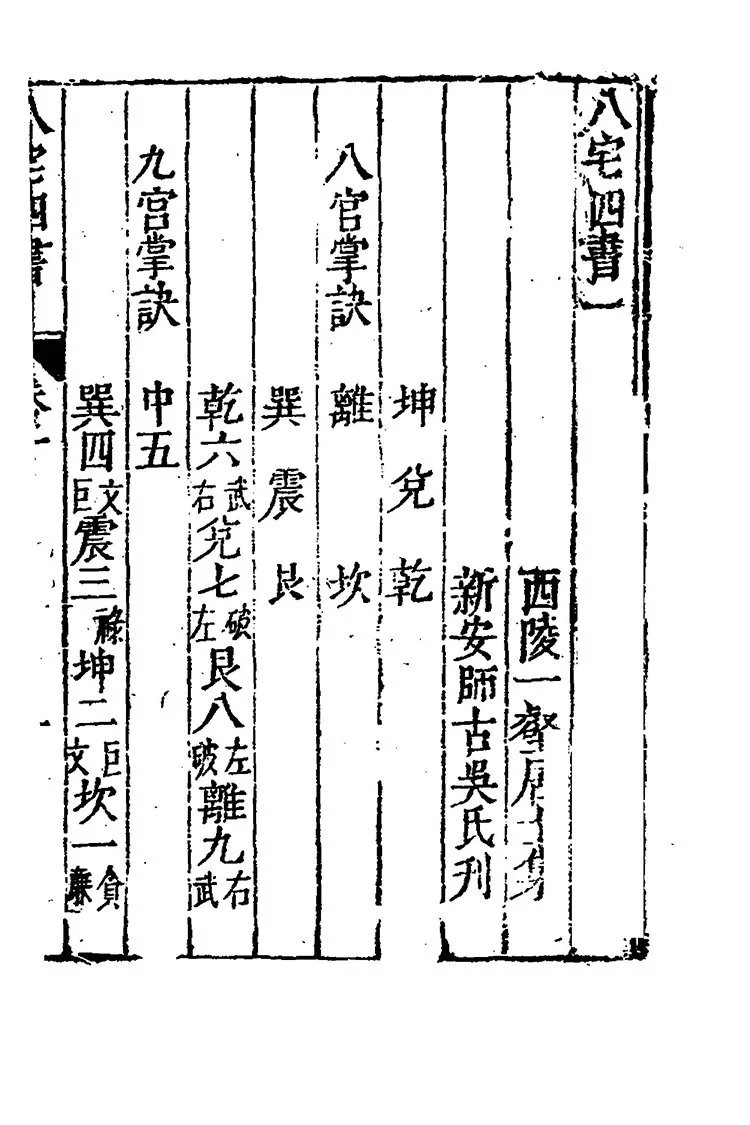 八宅四書一
西陵一壑居士集
新安師古吳氏刊
坤兌乾
八官掌訣 離 坎
巽震艮
乾六武右兌七破左艮八左破離九右武
九宫掌訣 中五
巽四文巨震三祿坤二巨文坎一貪廉
八宅四書 卷一 一